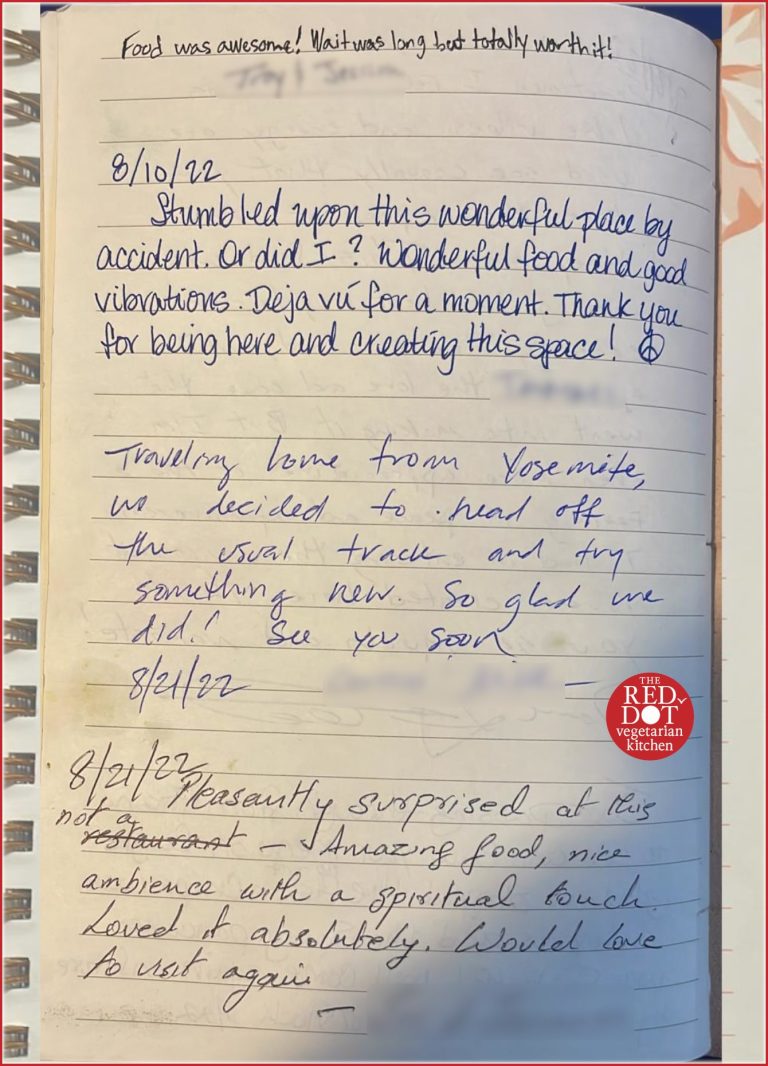 Food was awesome! Wait was long but totally worth it!
8/10/22
Stumbled upon this wonderful place by
accident. Or did I? Wonderful food and good
vibrations. Deja vú for a moment. Thank you
for being here and creating this space!
Traveling home from Yosemite,
we decided to head off
the usual track and try
something new. So glad we
did! See you soon
8/21/22 —
THE
RED
DOT
vegetarian
kitchen
8/21/22 Pleasantly surprised at this
not a
restaurant – Amazing food, nice
ambience with a spiritual touch.
Loved it absolutely. Would love
to visit again
—